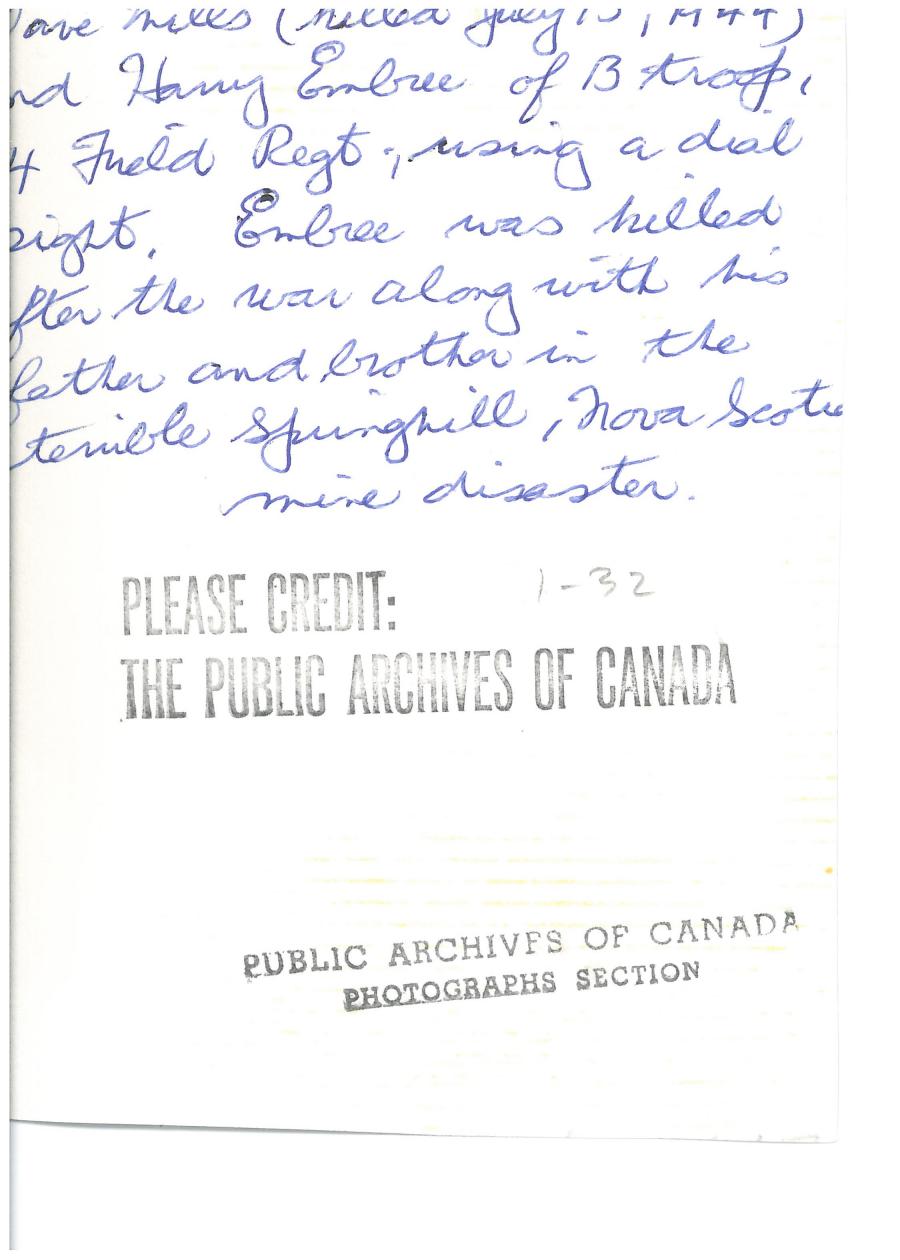 ave Mills (killed July 15, 1944)
nd Harry Embree of B troop,
4 Field Regt., using a dial
sight. Embree was killed
fter the war along with his
father and brother in the
terrible Springhill, Nova Scotia
mine disaster.
PLEASE CREDIT: 1-32
THE PUBLIC ARCHIVES OF CANADA
PUBLIC ARCHIVES OF CANADA
PHOTOGRAPHS SECTION